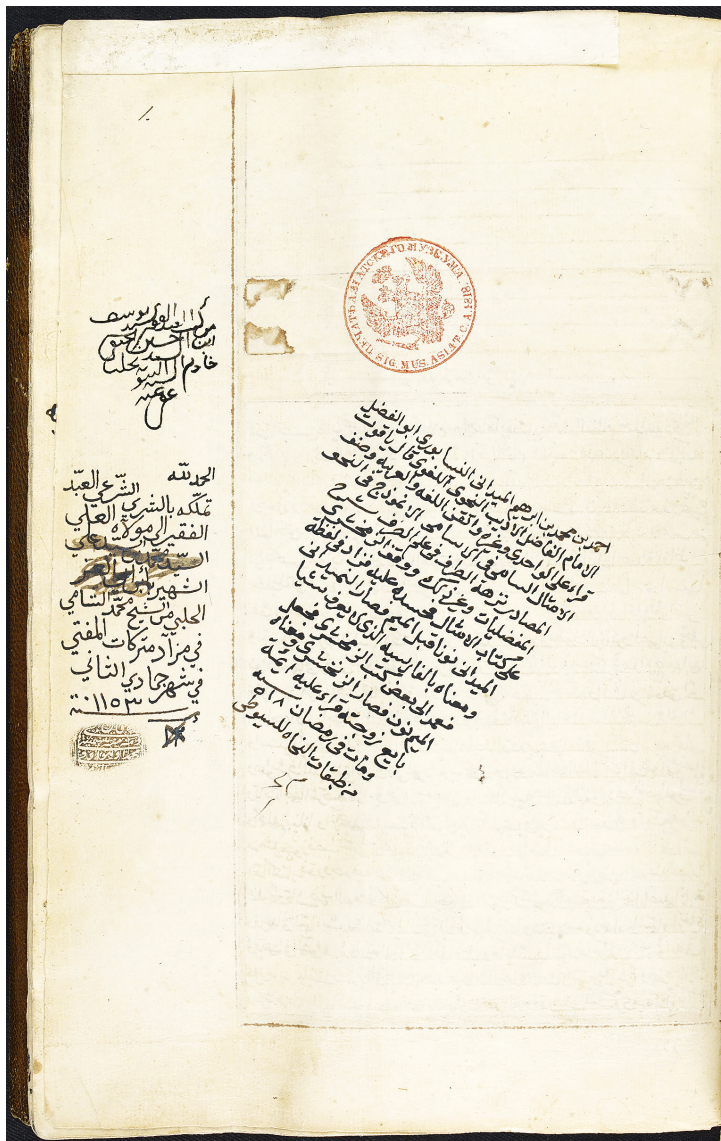 من كتب الفقير يوسف
ابن السيد حسين
خادم السنة النبوية بحلب
عفي عنه
الحمد لله
تملكه بالشري الشرعي العبد
الفقير الى مولاه العلي
السيد
الشهير
الحلبي من الشيخ محمد الشامي
في مزاد متركات المفتي
في شهر جمادي الثاني
سنة ١١٥٣
احمد بن محمد بن ابرهيم الميداني النيسابوري ابو الفضل
الامام الفاضل الاديب النحوي اللغوي قال ياقوت
قراء على الواحدي وغيره واتقن اللغة والعربية وصنف
الامثال السامي في الاسامي الانموذج في النحو
المصادر نزهة الطرف في علم الصرف شرح
المفضليات وغير ذلك ووقف الزمخشري
على كتابه الامثال فحسده عليه فزاد في لفظة
الميداني نونا قبل الميم فصار النميداني
ومعناه بالفارسية الذي لا يعرف شيئا
فعمد الى بعض كتب الزمخشري فجعل
الميم نون فصار الزنخشري ومعناه
بايع زوجته قراء عليه ائمة
ومات في رمضان سنة ٥١٨
من طبقات النحاة للسيوطي
SIG. MUS. ASIAT. C. A.